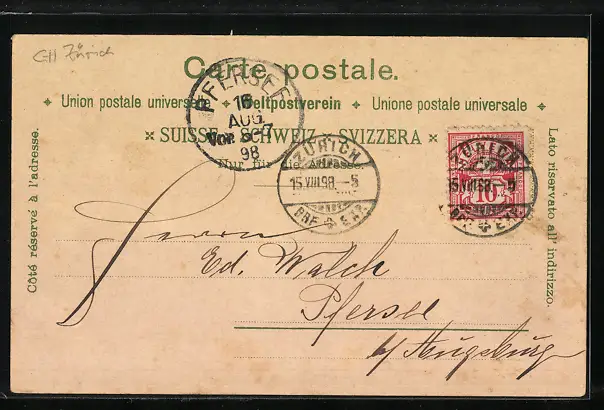 CH Zürich
Carte postale.
Union postale universelle. + Weltpostverein + Unione postale universale +
× SUISSE. SCHWEIZ. SVIZZERA ×
Nur für die Adresse.
Côté réservé à l'adresse.
Lato riservato all' indirizzo.
PFERSEE
16
AUG
Vor. 6-7
98
ZÜRICH
15.VIII.98.-5
BRF. EXP.
ZÜRICH
15.VIII.98.-5
BRF. EXP.
10
Herrn
Ed. Walch
Pfersee
b/Augsburg